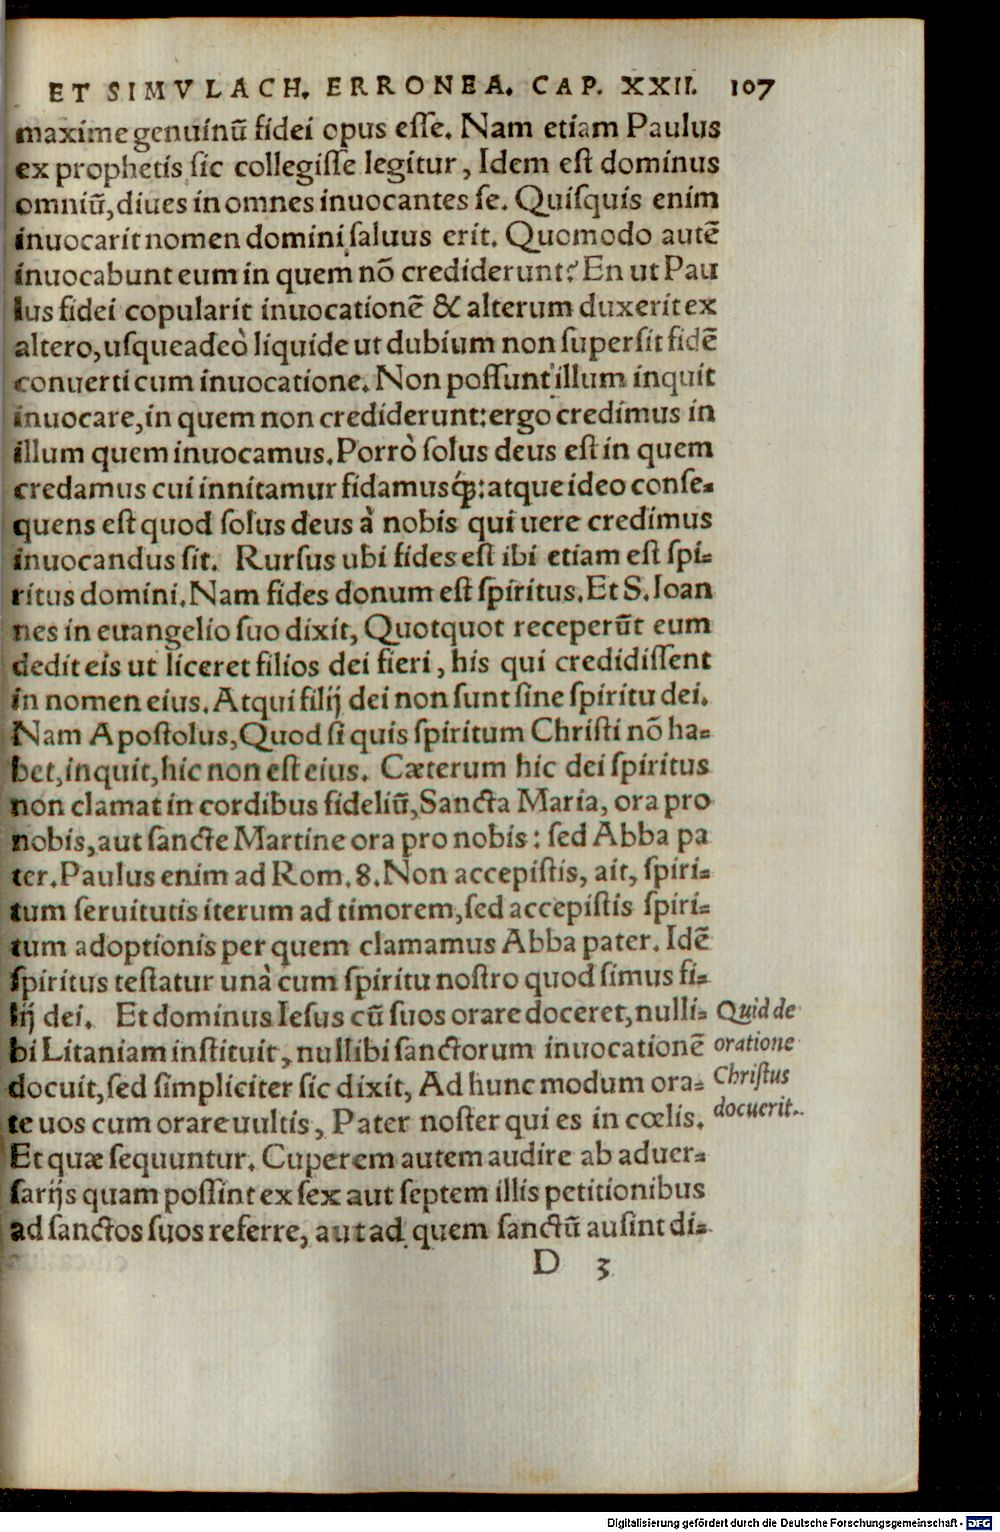 ET SIMVLACH. ERRONEA. CAP. XXII. 107
maxime genuinũ fidei opus eſſe. Nam etiam Paulus
ex prophetis ſic collegiſſe legitur, Idem eſt dominus
omniũ, diues in omnes inuocantes ſe. Quiſquis enim
inuocarit nomen domini ſaluus erit. Quomodo autẽ
inuocabunt eum in quem nõ crediderunt? En ut Pau
lus fidei copularit inuocationẽ & alterum duxerit ex
altero, uſqueadeò liquide ut dubium non ſuperſit fidẽ
conuerti cum inuocatione. Non poſſunt illum inquit
inuocare, in quem non crediderunt: ergo credimus in
illum quem inuocamus. Porrò ſolus deus eſt in quem
credamus cui innitamur fidamusq́;: atque ideo conſe-
quens eſt quod ſolus deus à nobis qui uere credimus
inuocandus ſit. Rurſus ubi fides eſt ibi etiam eſt ſpi-
ritus domini. Nam fides donum eſt ſpiritus. Et S. Ioan
nes in euangelio ſuo dixit, Quotquot receperũt eum
dedit eis ut liceret filios dei fieri, his qui credidiſſent
in nomen eius. Atqui filij dei non ſunt ſine ſpiritu dei.
Nam Apoſtolus, Quod ſi quis ſpiritum Chriſti nõ ha-
bet, inquit, hic non eſt eius. Cæterum hic dei ſpiritus
non clamat in cordibus fideliũ, Sancta Maria, ora pro
nobis, aut ſancte Martine ora pro nobis: ſed Abba pa
ter. Paulus enim ad Rom. 8. Non accepiſtis, ait, ſpiri-
tum ſeruitutis iterum ad timorem, ſed accepiſtis ſpiri-
tum adoptionis per quem clamamus Abba pater. Idẽ
ſpiritus teſtatur unà cum ſpiritu noſtro quod ſimus fi-
lij dei. Et dominus Ieſus cũ ſuos orare doceret, nulli-
bi Litaniam inſtituit, nullibi ſanctorum inuocationẽ
docuit, ſed ſimpliciter ſic dixit, Ad hunc modum ora-
te uos cum orare uultis, Pater noſter qui es in cœlis.
Et quæ ſequuntur. Cuperem autem audire ab aduer-
ſarijs quam poſſint ex ſex aut ſeptem illis petitionibus
ad ſanctos ſuos referre, aut ad quem ſanctũ auſint di-
D 3
Quid de
oratione
Chriſtus
docuerit.
Digitalisierung gefördert durch die Deutsche Forschungsgemeinschaft - DFG